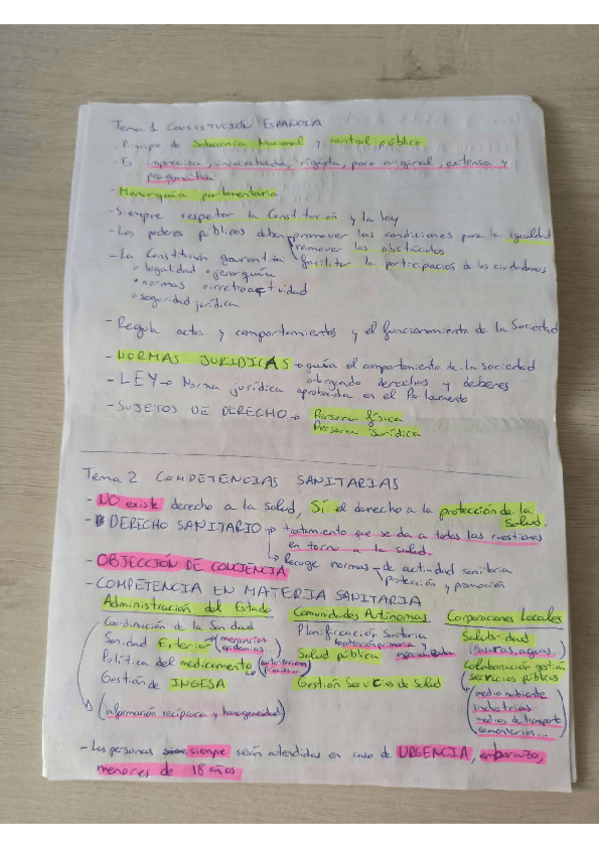 Tema 1 CONSTITUCIÓN ESPAÑOLA
- Principio de Soberanía Nacional y control público
- Es imprecisa, inacabada, rígida, poco original, extensa y
pragmática
- Monarquía parlamentaria
- Siempre respetar la Constitución y la ley
- Los poderes públicos deben promover las condiciones para la igualdad
remover los obstáculos
facilitar la participación de los ciudadanos
- La Constitución garantiza
o legalidad o jerarquía
o normas o irretroactividad
o seguridad jurídica
- Regula actos y comportamientos y el funcionamiento de la Sociedad
- NORMAS JURIDICAS → guía el comportamiento de la sociedad
otorgando derechos y deberes
- LEY → Norma jurídica aprobada en el Parlamento
- SUJETOS DE DERECHO → Persona física
Persona Jurídica
Tema 2 COMPETENCIAS SANITARIAS
- NO existe derecho a la salud, SÍ el derecho a la protección de la
salud.
- DERECHO SANITARIO → tratamiento que se da a todas las cuestiones
en torno a la salud.
→ Recoge normas - de actividad sanitaria
- protección y promoción
- OBJECCIÓN DE CONCIENCIA
- COMPETENCIA EN MATERIA SANITARIA
Administración del Estado Comunidades Autónomas Corporaciones Locales
Coordinación de la Sanidad
Sanidad Exterior (mercancías, epidemias...)
Política del medicamento (autorizaciones precios...)
Gestión de INGESA
(información recíproca y homogeneidad)
Planificación Sanitaria
Salud pública
Gestión Servicios de Salud
Salubridad
(basuras, aguas...)
Colaboración gestión
servicios públicos
(medio ambiente
industrias
medios de transporte
cementerios...)
- Las personas siempre serán atendidas en caso de URGENCIA, embarazo,
menores de 18 años